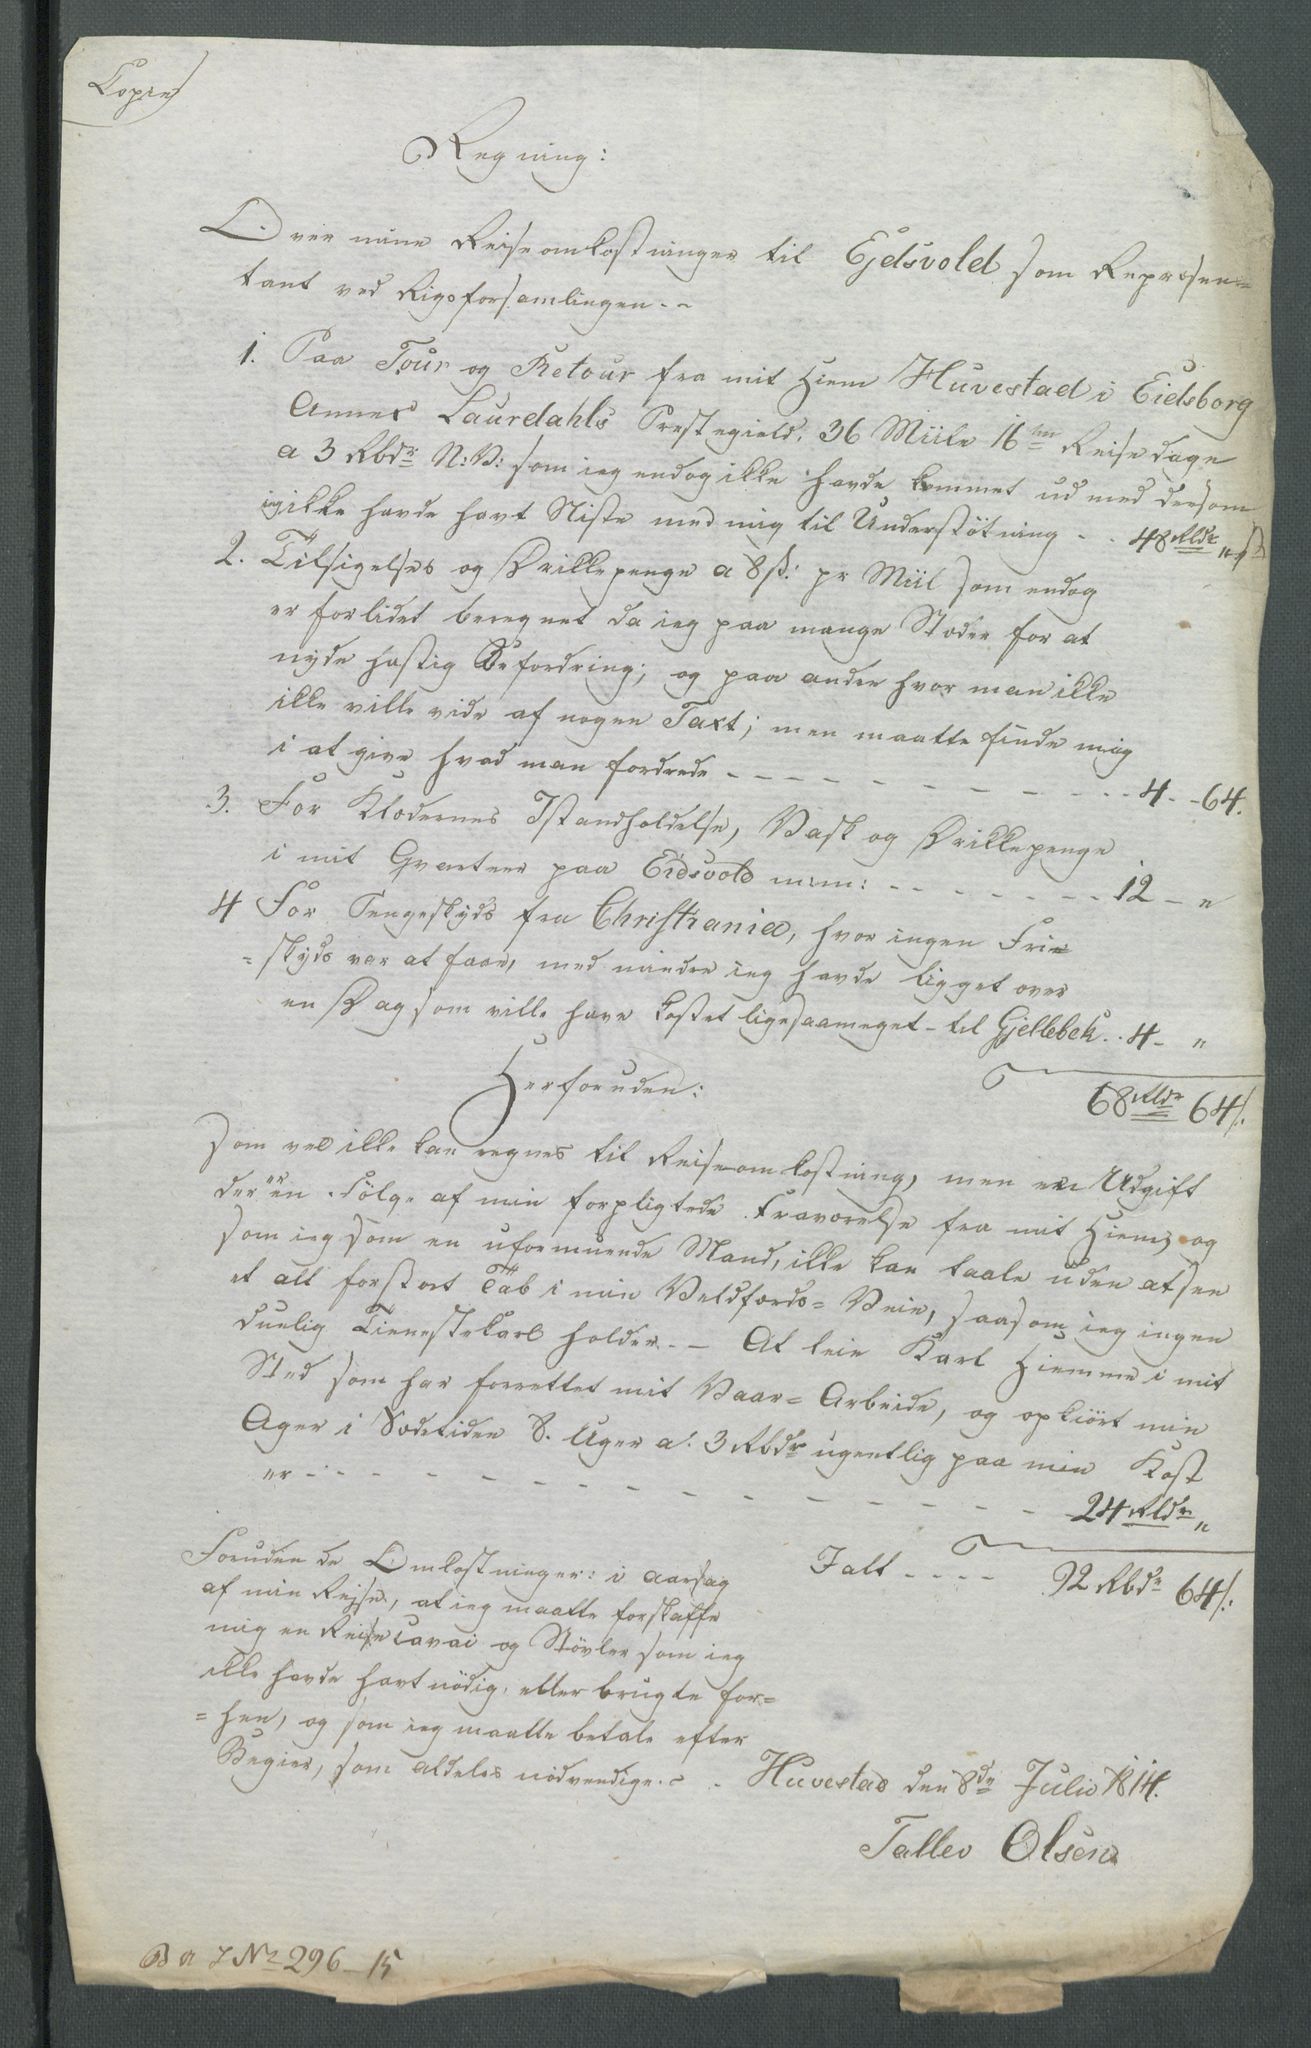 Copie
Regning:
Over mine Reiseomkostninger til Ejdsvold som Repræsen=
tant ved Rigsforsamlingen. -
1. Paa Tour og Retour fra mit Hiem Huvestad i Eidsborg
Annex Laurdahls Præstegield, 36 Miile 16 Reisedage
a 3 Rbdr N:V: som ieg endog ikke havde kommet ud med dersom
ieg ikke havde havt Niste med mig til Understötning - - 48 Rbdr "
2. Tilsigelses og Drikkepenge a 8 ß: pr Miil som endog
er forlidet beregnet da ieg paa mange Stæder for at
nyde hastig Befordring; og paa andre hvor man ikke
ikke ville vide af nogen Taxt; men maatte finde mig
i at give hvad man fordrede - - - - - - - - 4 - 64.
3. For Klædernes Istandholdelse, Vask og Drikkepenge
i mit Qvarteer paa Eidsvold m:m: - - - - - - 12 - "
4 For Pengeskyds fra Christiania, hvor ingen Frie
=skyds var at faae, med mindre ieg havde ligget over
en Dag som ville have kostet ligesaameget - til Gjellebek. . 4 - "
68 Rbdr 64 ß.
Herforuden:
som vel ikke kan regnes til Reiseomkostning, men een Udgift
der er en Fölge af min forpligtede Fraværelse fra mit Hiem, og
som ieg som en uformuende Mand, ikke kan taale uden at see
et alt forstort Tab i min Veldfærds= Veie, saasom ieg ingen
duelig Tienestekarl holder. - At leie Karl Hiemme i mit
Sted som har forrettet mit Vaar= Arbeide, og opkiört min
Ager i Sædetiden 8. Uger a: 3 Rbdr ugentlig paa min Kost
er - - - - - - - - - - - - 24 Rbdr "
Ialt - - - - 92 Rbdr 64 ß:
Foruden de Omkostninger: i aarsag
af min Rejse, at ieg maatte forskaffe
mig en Reisecavai og Stövler som ieg
ikke havde havt nödig, eller brugte for=
=hen, og som ieg maatte betale efter
Begier, som aldeles nödvendige. -
Huvestad den 8de Julii 1814.
Tallev Olsen
No 296 - 15